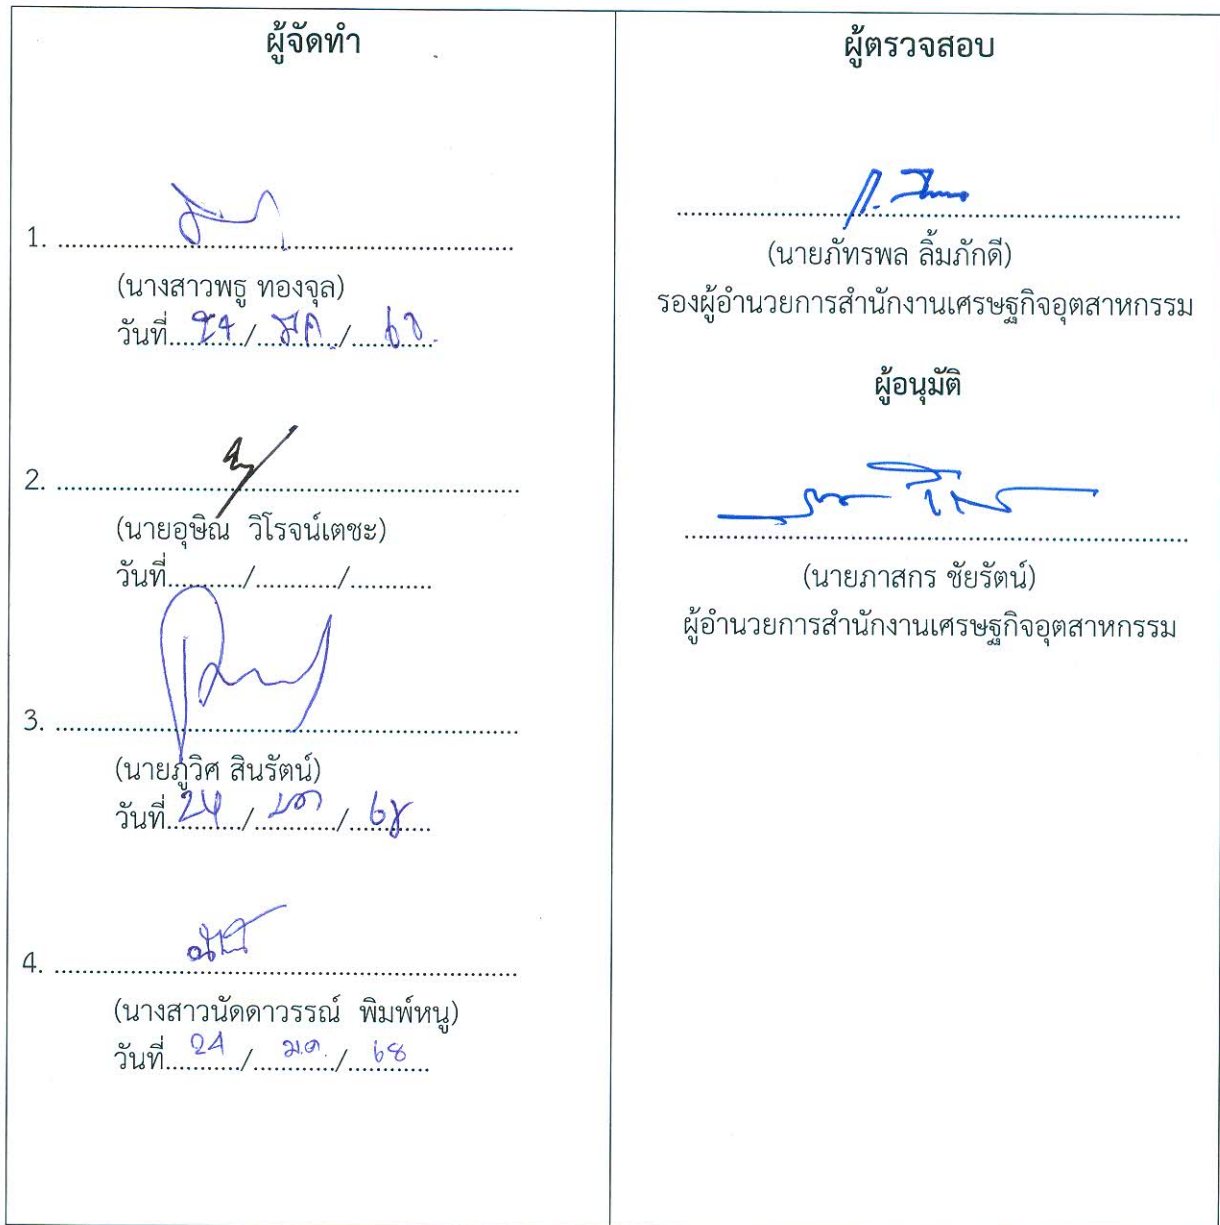 ผู้จัดทำ
1. ........................................
(นางสาวพธู ทองจุล)
วันที่ 24 / ม.ค. / 68
2. ........................................
(นายอุษิณ วิโรจน์เตชะ)
วันที่.........../.........../...........
3. ........................................
(นายภูวิศ สินรัตน์)
วันที่ 24 / มค / 68
4. ........................................
(นางสาวนัดดาวรรณ์ พิมพ์หนู)
วันที่ 24 / ม.ค. / 68
ผู้ตรวจสอบ
(นายภัทรพล ลิ้มภักดี)
รองผู้อำนวยการสำนักงานเศรษฐกิจอุตสาหกรรม
ผู้อนุมัติ
(นายภาสกร ชัยรัตน์)
ผู้อำนวยการสำนักงานเศรษฐกิจอุตสาหกรรม